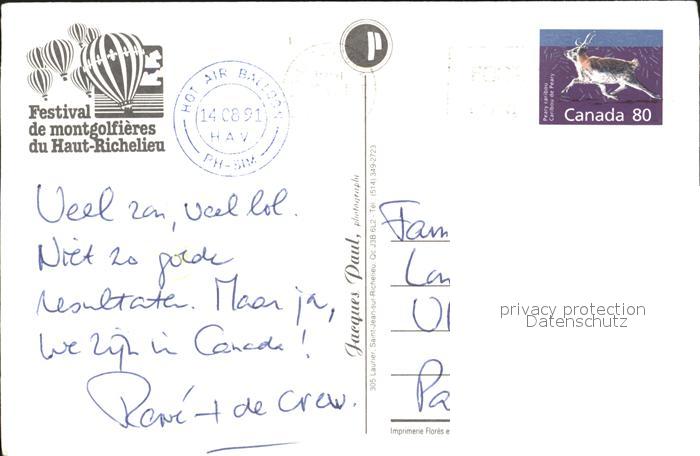 Festival
de montgolfières
du Haut-Richelieu
HOT AIR BALLOON
14 08 91
H A V
PH-SIM
Veel zon, veel lol.
Niet zo goede
resultaten. Maar ja,
we zijn in Canada!
René + de crew.
Jacques Paul, photographe
305 Laurier, Saint-Jean-sur-Richelieu, Qc J3B 6L2 - Tél.: (514) 349-2723
Peary caribou
Caribou de Peary
Canada 80
Fam
Imprimerie Florés e
privacy protection
Datenschutz